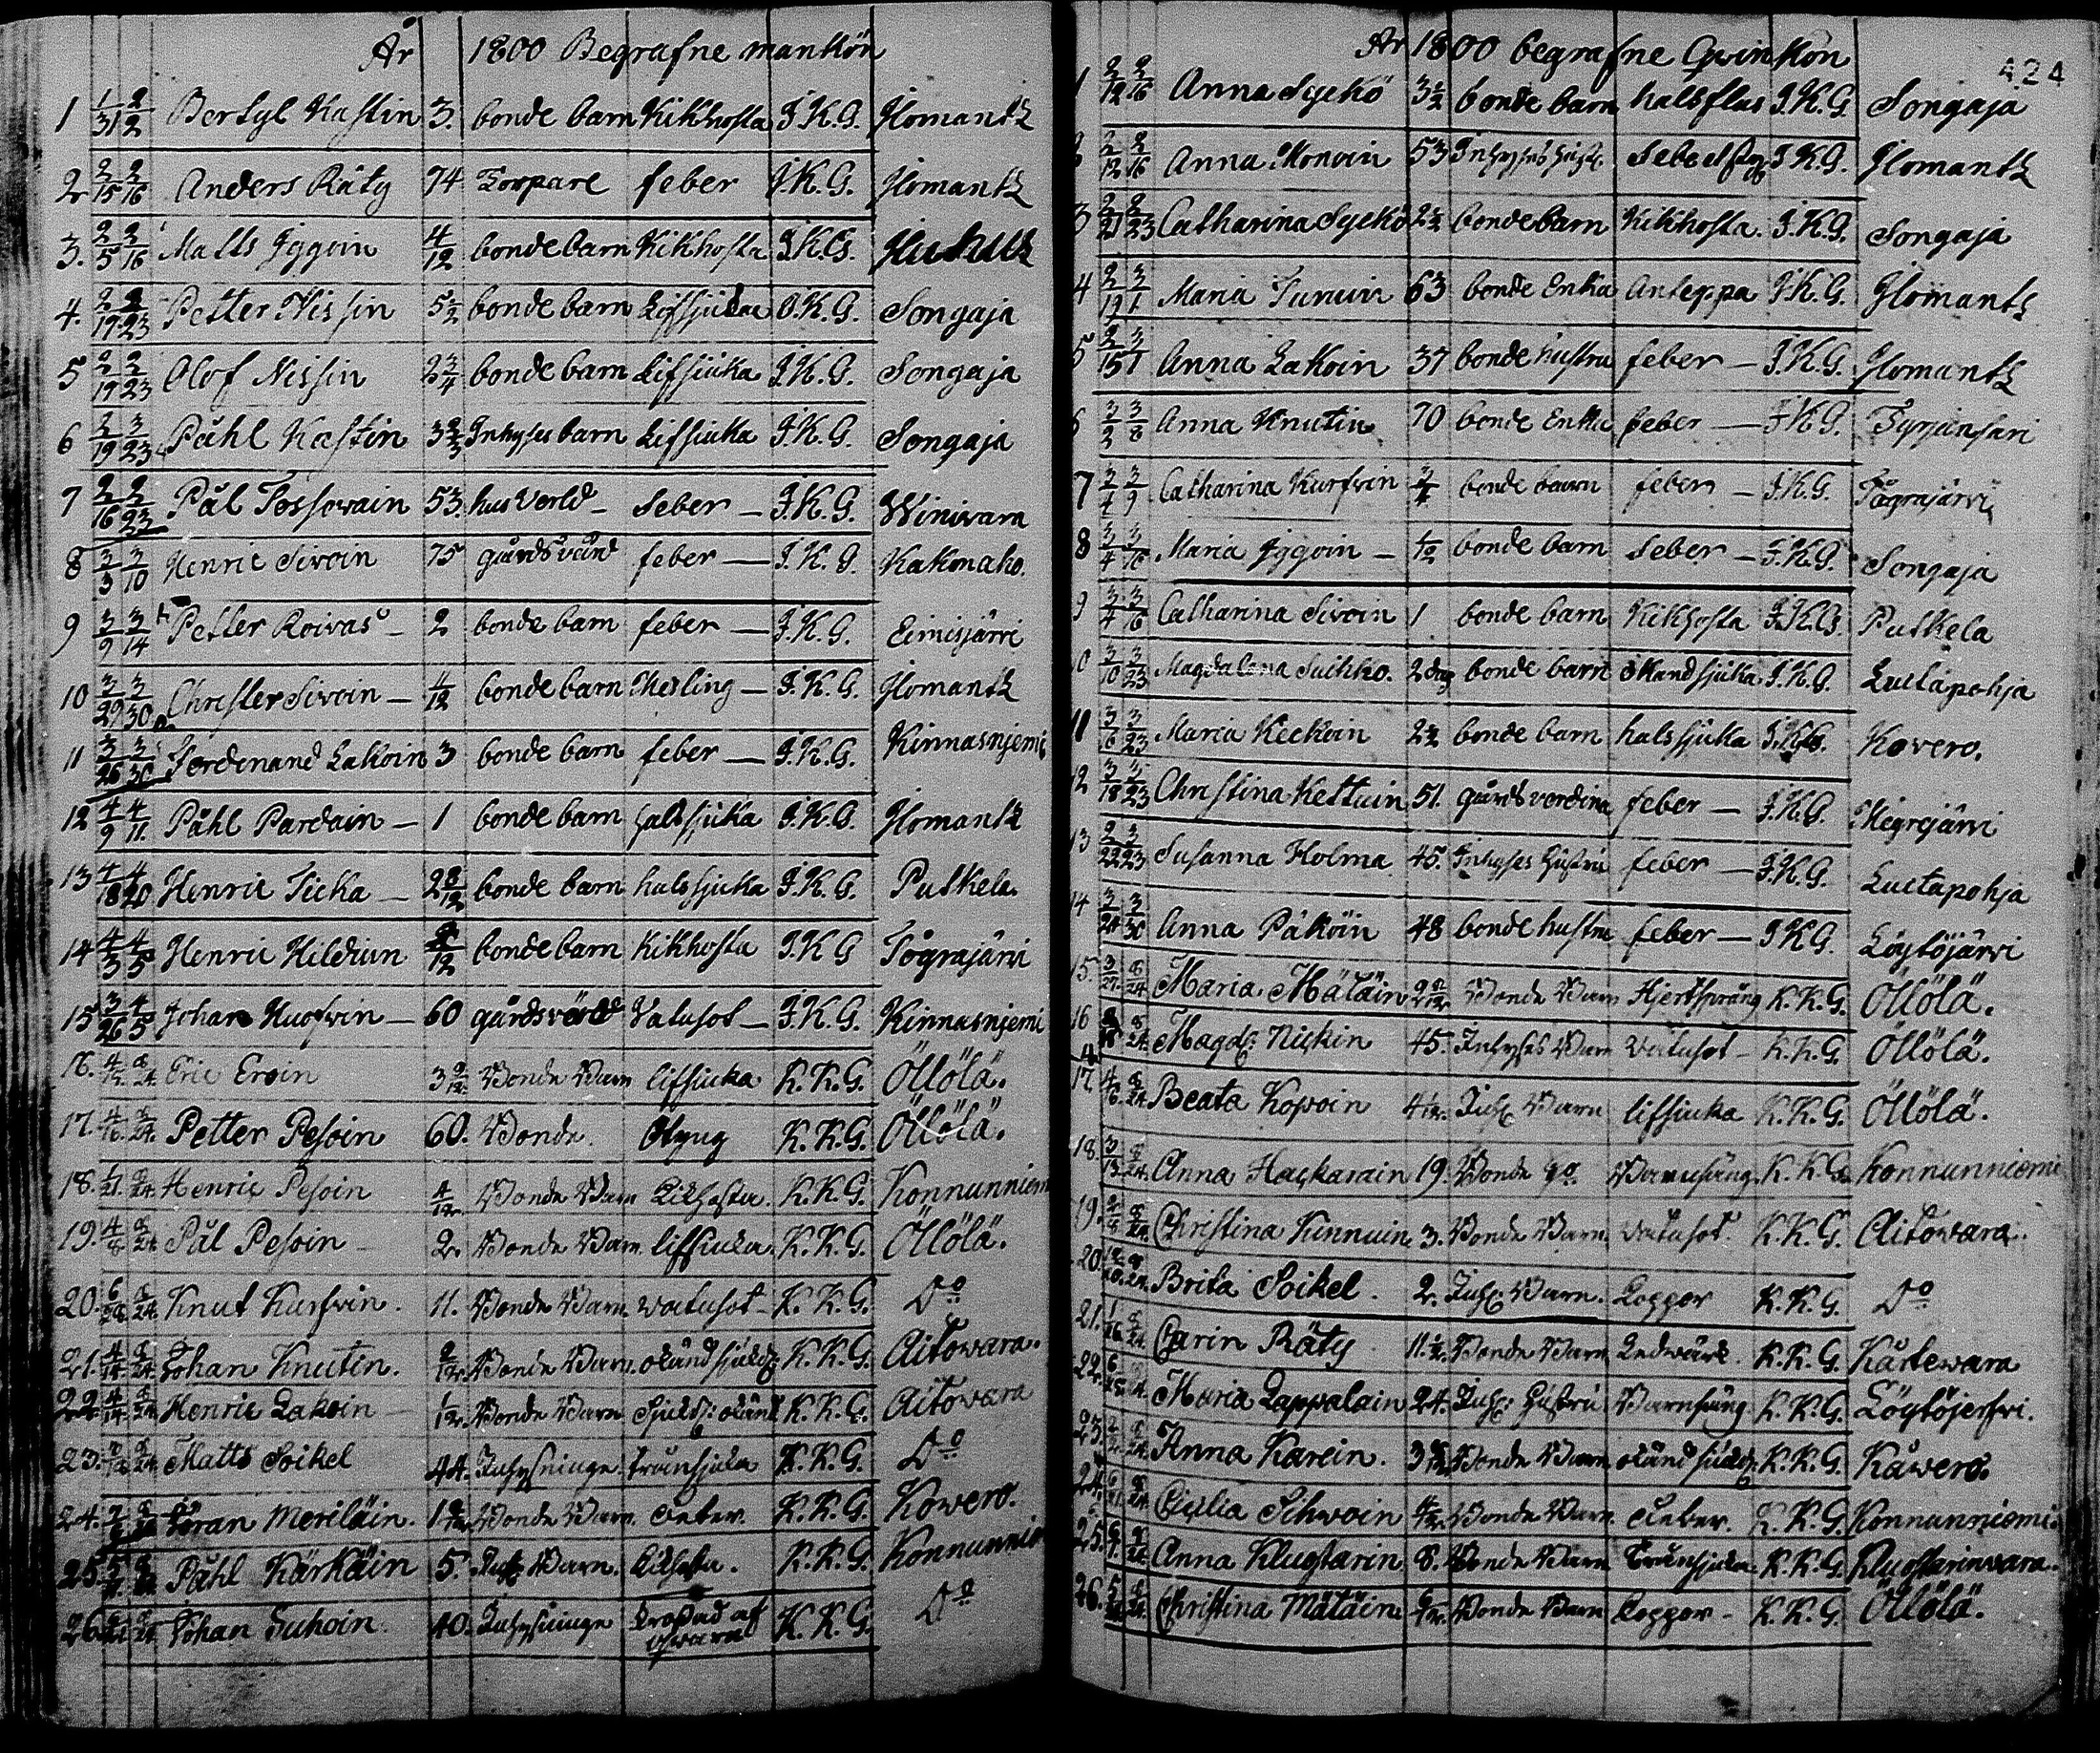 År 1800 Begrafne mankön
1 1/31 2/2 Bertyl Kastin 3. bonde barn Kikhosta I.K.G. Ilomantz
2 2/15 2/16 Anders Räty 74 Torpare feber I.K.G. Ilomantz
3. 2/5 2/16 Matts Iggoin 4/12 bonde barn Kikhosta I.K.G.
4. 2/19 2/23 Petter Nissin 5 1/2 bonde barn Lifsjuka I.K.G. Songaja
5 2/19 2/23 Olof Nissin 2 3/4 bonde barn Lifsiuka I.K.G. Songaja
6 2/19 2/23 Påhl Kastin 3 2/3 Inhyses barn Lifsiuka I.K.G. Songaja
7 2/16 2/23 Pål Tossowain 53. husverd feber I.K.G. Winiwara
8 3/3 3/10 Henric Sivoin 75 gårdsvärd feber I.K.G. Kakonaho.
9 3/9 3/14 Petter Roivas 2 bonde barn feber I.K.G. Eimisjärvi
10 3/29 3/30 Christer Sivoin 11/12 bonde barn Mesling I.K.G. Ilomantz
11 3/26 3/30 Ferdinand Lakoin 3 bonde barn feber I.K.G. Kinnasnjemi
12 4/9 4/11. Påhl Pardain 1 bonde barn halssjuka I.K.G. Ilomantz
13 4/18 4/20 Henric Ticka 2 8/12 bonde barn halssjuka I.K.G. Putkela.
14 4/3 4/5 Henric Hildiun bonde barn Kikhosta I.K.G Tögrajärvi
15 3/26 4/5 Johan Huorvin 60 gårdsvärd Vatusot I.K.G. Kinnasnjemi
16. Eric Eroin 3 Bonde Barn lifsiuka K.K.G. Öllölä.
17. Petter Pesoin 60. Bonde. Styng K.K.G. Öllölä.
18. Henric Pesoin 4/12. Bonde Barn Kikhosta. K.K.G. Konnunniem
19. 4/8 Pål Pesoin 2. Bonde Barn lifsiuka. K.K.G. Öllölä.
20. Knut Kurfvin. 11. Bonde Barn. watusot K.K.G. Do
21. Johan Knutin. Bonde Barn. okänd sjukd: K.K.G. Aitowara.
22. 4/14 Henric Lakoin 1/12. Bonde Barn Sjukd: okänd K.K.G. Aitowara
23. Matts Soikel 44. Inhysninge. Tränsjuka K.K.G. Do
24. Göran Meriläin. Bonde Barn. K.K.G. Kowero.
25. Påhl Kärkäin 5. Inh: Barn. Kikhosta. K.K.G. Konnunnie
26. Johan Suhoin. 40. Inhysninge Krossad af K.K.G. Do
År 1800 begrafne Qvinkön
424
1 2/12 2/16 Anna Syckö 3 1/2 bonde barn halsflus I.K.G. Songaja
2/12 2/16 Anna Monoin 53 Inhyses hust. I.K.G. Ilomantz
3 2/21 2/23 Catharina Syckö 2 1/2 bonde barn Kikhosta. I.K.G. Songaja
4 2/19 3/1 Maria Turuin 63 bonde Enka Anteppa I.K.G. Ilomantz
5 2/15 3/1 Anna Lakoin 37 bonde hustru feber I.K.G. Ilomantz
6 3/3 3/8 Anna Knutin 70 bonde Enka feber I.K.G. Tyrjänsari
7 3/4 3/9 Catharina Kurfvin 3/4 bonde barn feber I.K.G. Tögrajärvi
8 3/4 3/16 Maria Iggoin 1/12 bonde barn feber I.K.G. Songaja
9 3/4 3/16 Catharina Sivoin 1 bonde barn Kikhosta I.K.G. Putkela
10 3/10 3/23 Magdalena Suihko. 2 dag bonde barn okand sjuka I.K.G. Luctapohja
11 3/16 3/23 Maria Keckoin 2 1/2 bonde barn halssjuka I.K.G. Kovero.
12 3/18 3/23 Christina Kettuin 51. gårdsverdina feber I.K.G. Megrejärvi
13 3/22 3/23 Susanna Holma 45. Inhyses hustru feber I.K.G. Luctapohja
14 3/24 3/30 Anna Päköin 48 bonde hustru feber I.K.G. Löytöjärvi
15. Maria Mätäin Bonde Barn Hjertsprång K.K.G. Öllölä.
16 Magd: Nickin 45. Inhyses Barn Vatusot K.K.G. Öllölä.
17. Beata Kopoin 4 Inh: Barn lifsiuka K.K.G. Öllölä.
18. 3/13. Anna Hackarain 19. Bonde Barnsäng. K.K.G. Konnunniemi
19. Christina Kinnuin 3. Bonde Barn. Vatusot. K.K.G. Aitowara.
20. Brita Soikel. 2. Inh: Barn. Koppor K.K.G. Do
21. Carin Räty 11. Bonde Barn Ledwärk. K.K.G. Kärkewara
22. Maria Lappalain 24. Inh: Hustru Barnsäng K.K.G. Löytöjerfvi.
23. Anna Karein. 3 Bonde Barn okänd sjukd: K.K.G. Kåwero.
24. Cicilia Sihwoin Bonde Barn. K.K.G. Konnunniemi.
25. Anna Klugtarin 8. Bonde Barn Tränsjuka. K.K.G. Klugtarinwara.
26. Christina Mätäin Bonde Barn Koppor K.K.G. Öllölä.